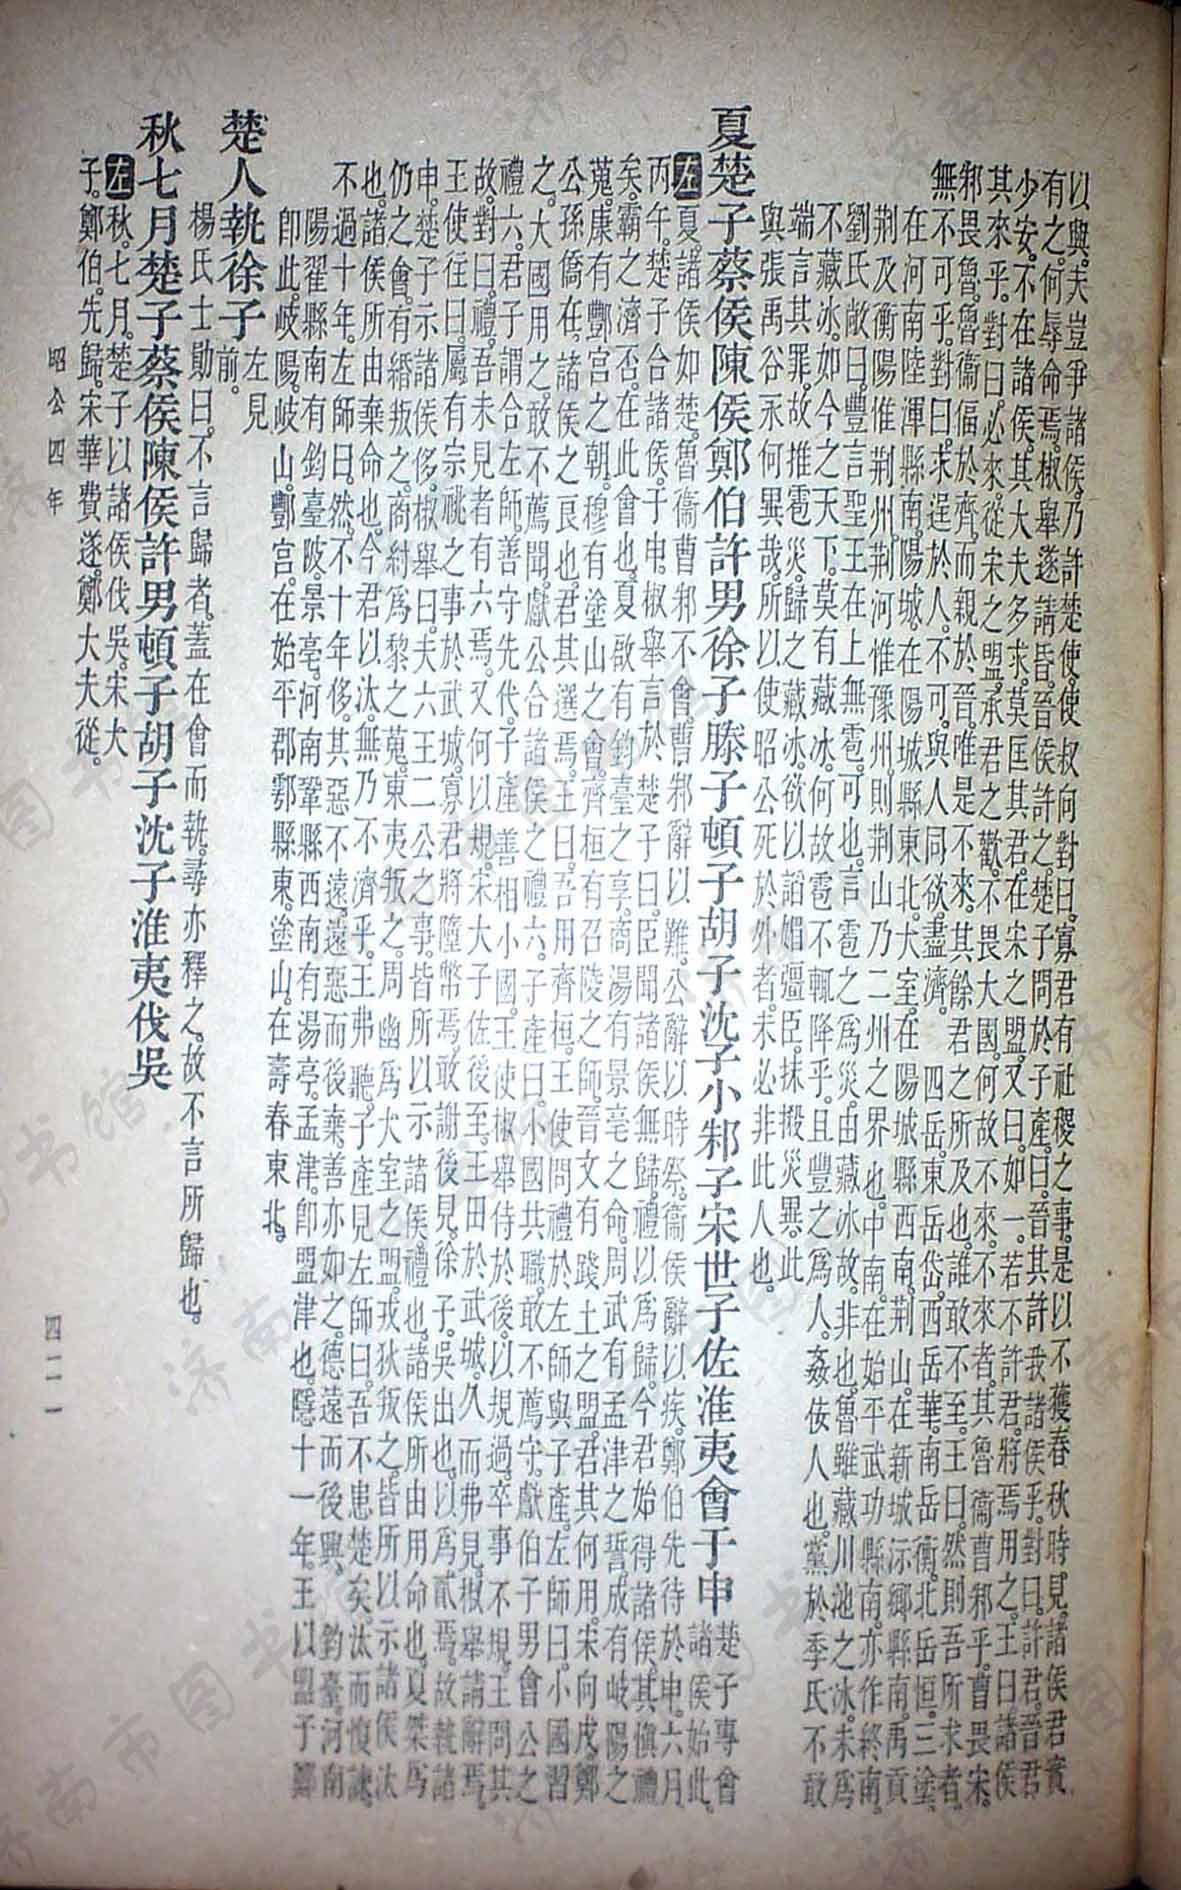 以與夫豈爭諸侯乃許楚使使叔向對曰寡君有社稷之事是以不獲春秋時見諸侯君實
有之何辱命焉椒舉遂請昏晉侯許之楚子問於子產曰晉其許我諸侯乎對曰許君晉君
少安不在諸侯其大夫多求莫匡其君在宋之盟又曰如一若不許君將焉用之王曰諸侯
其來乎對曰必來從宋之盟承君之歡不畏大國何故不來不來者其魯衞曹邾乎曹畏宋
邾畏魯魯衞偪於齊而親於晉唯是不來其餘君之所及也誰敢不至王曰然則吾所求者
無不可乎對曰求逞於人不可與人同欲盡濟 四岳東岳岱西岳華南岳衡北岳恒三塗
在河南陸渾縣南陽城在陽城縣東北大室在陽城縣西南荆山在新城沶鄉縣南禹貢
荆及衡陽惟荆州荆河惟豫州則荆山乃二州之界也中南在始平武功縣南亦作終南
劉氏敞曰豐言聖王在上無雹可也言雹之爲災由藏冰故非也魯雖藏川池之冰未爲
不藏冰如今之天下莫有藏冰何故雹不輒降乎且豐之爲人姦佞人也黨於季氏不敢
端言其罪故推雹災歸之藏冰欲以諂媚彊臣抹搬災異此
與張禹谷永何異哉所以使昭公死於外者未必非此人也
夏楚子蔡侯陳侯鄭伯許男徐子滕子頓子胡子沈子小邾子宋世子佐淮夷會于申 楚子專會
諸侯始此
左夏諸侯如楚魯衞曹邾不會曹邾辭以難公辭以時祭衞侯辭以疾鄭伯先待於申六月
丙午楚子合諸侯于申椒舉言於楚子曰臣聞諸侯無歸禮以爲歸今君始得諸侯其愼禮
矣霸之濟否在此會也夏啟有鈞臺之享商湯有景亳之命周武有孟津之誓成有岐陽之
蒐康有酆宮之朝穆有塗山之會齊桓有召陵之師晉文有踐土之盟君其何用宋向戌鄭
公孫僑在諸侯之良也君其選焉王曰吾用齊桓王使問禮於左師與子產左師曰小國習
之大國用之敢不薦聞獻公合諸侯之禮六子產曰小國共職敢不薦守獻伯子男會公之
禮六君子謂合左師善守先代子產善相小國王使椒舉侍於後以規過卒事不規王問其
故對曰禮吾未見者有六焉又何以規宋大子佐後至王田於武城久而弗見椒舉請辭焉
王使往曰屬有宗祧之事於武城寡君將墮幣焉敢謝後見徐子吳出也以爲貳焉故執諸
申楚子示諸侯侈椒舉曰夫六王二公之事皆所以示諸侯禮也諸侯所由用命也夏桀爲
仍之會有緡叛之商紂爲黎之蒐東夷叛之周幽爲大室之盟戎狄叛之皆所以示諸侯汰
也諸侯所由棄命也今君以汰無乃不濟乎王弗聽子產見左師曰吾不患楚矣汰而愎諫
不過十年左師曰然不十年侈其惡不遠遠惡而後棄善亦如之德遠而後興 鈞臺河南
陽翟縣南有鈞臺陂景亳河南鞏縣西南有湯亭孟津卽盟津也隱十一年王以盟子鄭
卽此岐陽岐山酆宮在始平郡鄠縣東塗山在壽春東北
楚人執徐子 左見
前
楊氏士勛曰不言歸者蓋在會而執尋亦釋之故不言所歸也
秋七月楚子蔡侯陳侯許男頓子胡子沈子淮夷伐吳
左秋七月楚子以諸侯伐吳宋大
子鄭伯先歸宋華費遂鄭大夫從
昭公四年
四一一